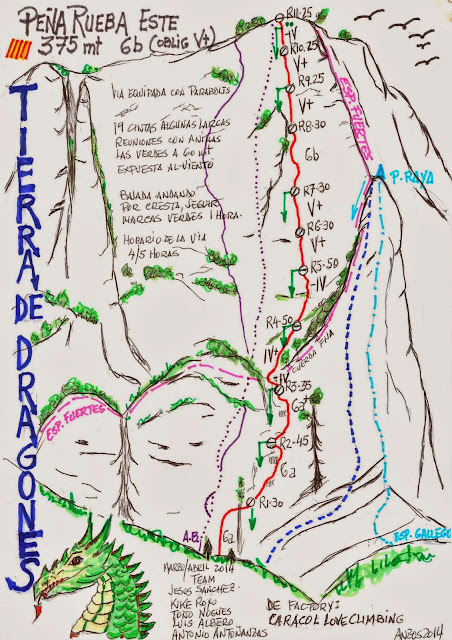 PEÑA RUEBA ESTE
375 mt 6b (OBLIG V+)
TIERRA DE DRAGONES
VIA EQUIPADA CON PARABOLTS
19 CINTAS ALGUNAS LARGAS
REUNIONES CON ANILLAS
LAS VERDES A 60 mt
EXPUESTA AL VIENTO
BAJADA ANDANDO
POR CRESTA, SEGUIR
MARCAS VERDES 1 HORA.
HORARIO DE LA VIA
4/5 HORAS
R11-25
IV
R10.25
V+
R9.25
V+
R8-30
6b
R7-30
V+
R6-30
V+
R5-50
-IV
R4-50
IV+
CUERDA FIJA
-IV
R3-35
6a+
R2-45
6a
R1-30
6a
ESP. FUERTES
P. RAYA
ESP. FUERTES
A.E.
ESP. GALLEGO
MARZO/ABRIL 2014
TEAM
JESUS SANCHEZ
KIKE ROYO
TOÑO NOGUES
LUIS ALBERO
ANTONIO ANTOÑANZAS
DE FACTORY:
CARACOL LOVECLIMBING
ANZOS 2014